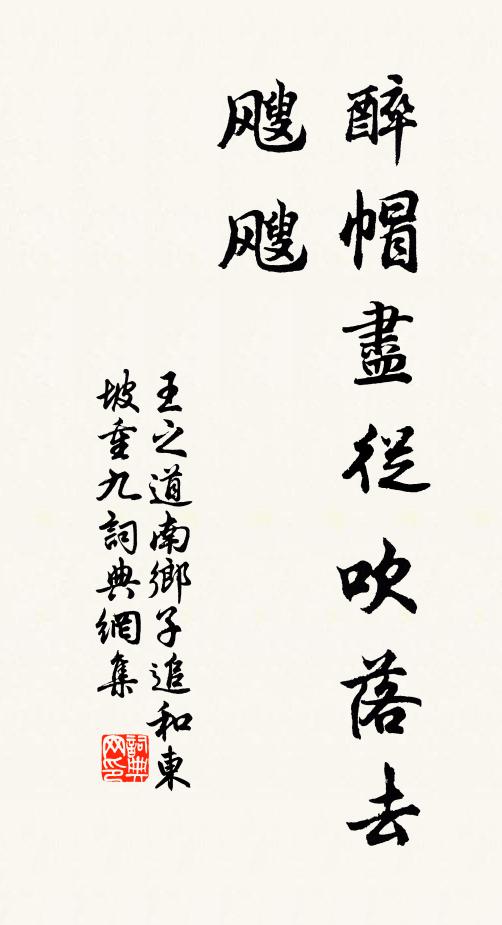 醉帽盡從吹落去
飋飋
王之道南鄉子追和東
坡重九詞典網集
詞典
网印